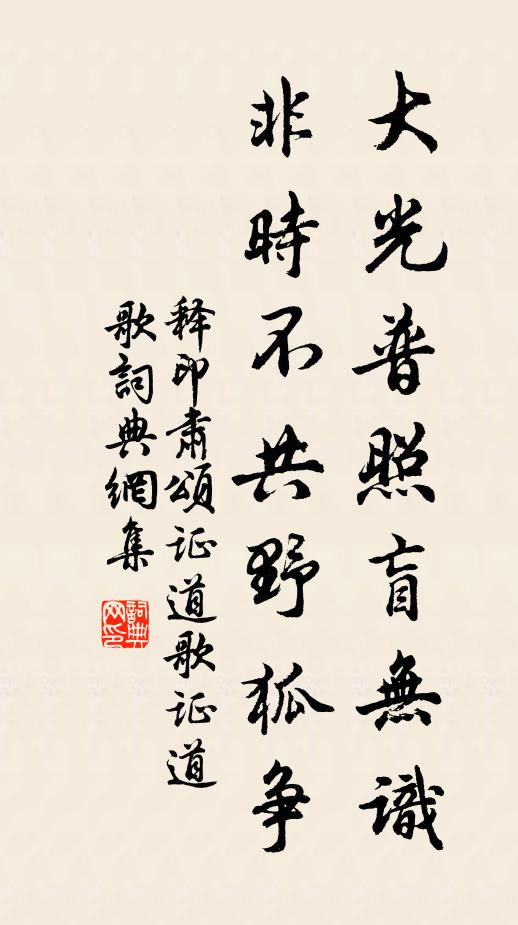 大光普照盲無識
非時不共野狐争
释印肃頌证道歌证道
歌詞典網集
詞典
网印